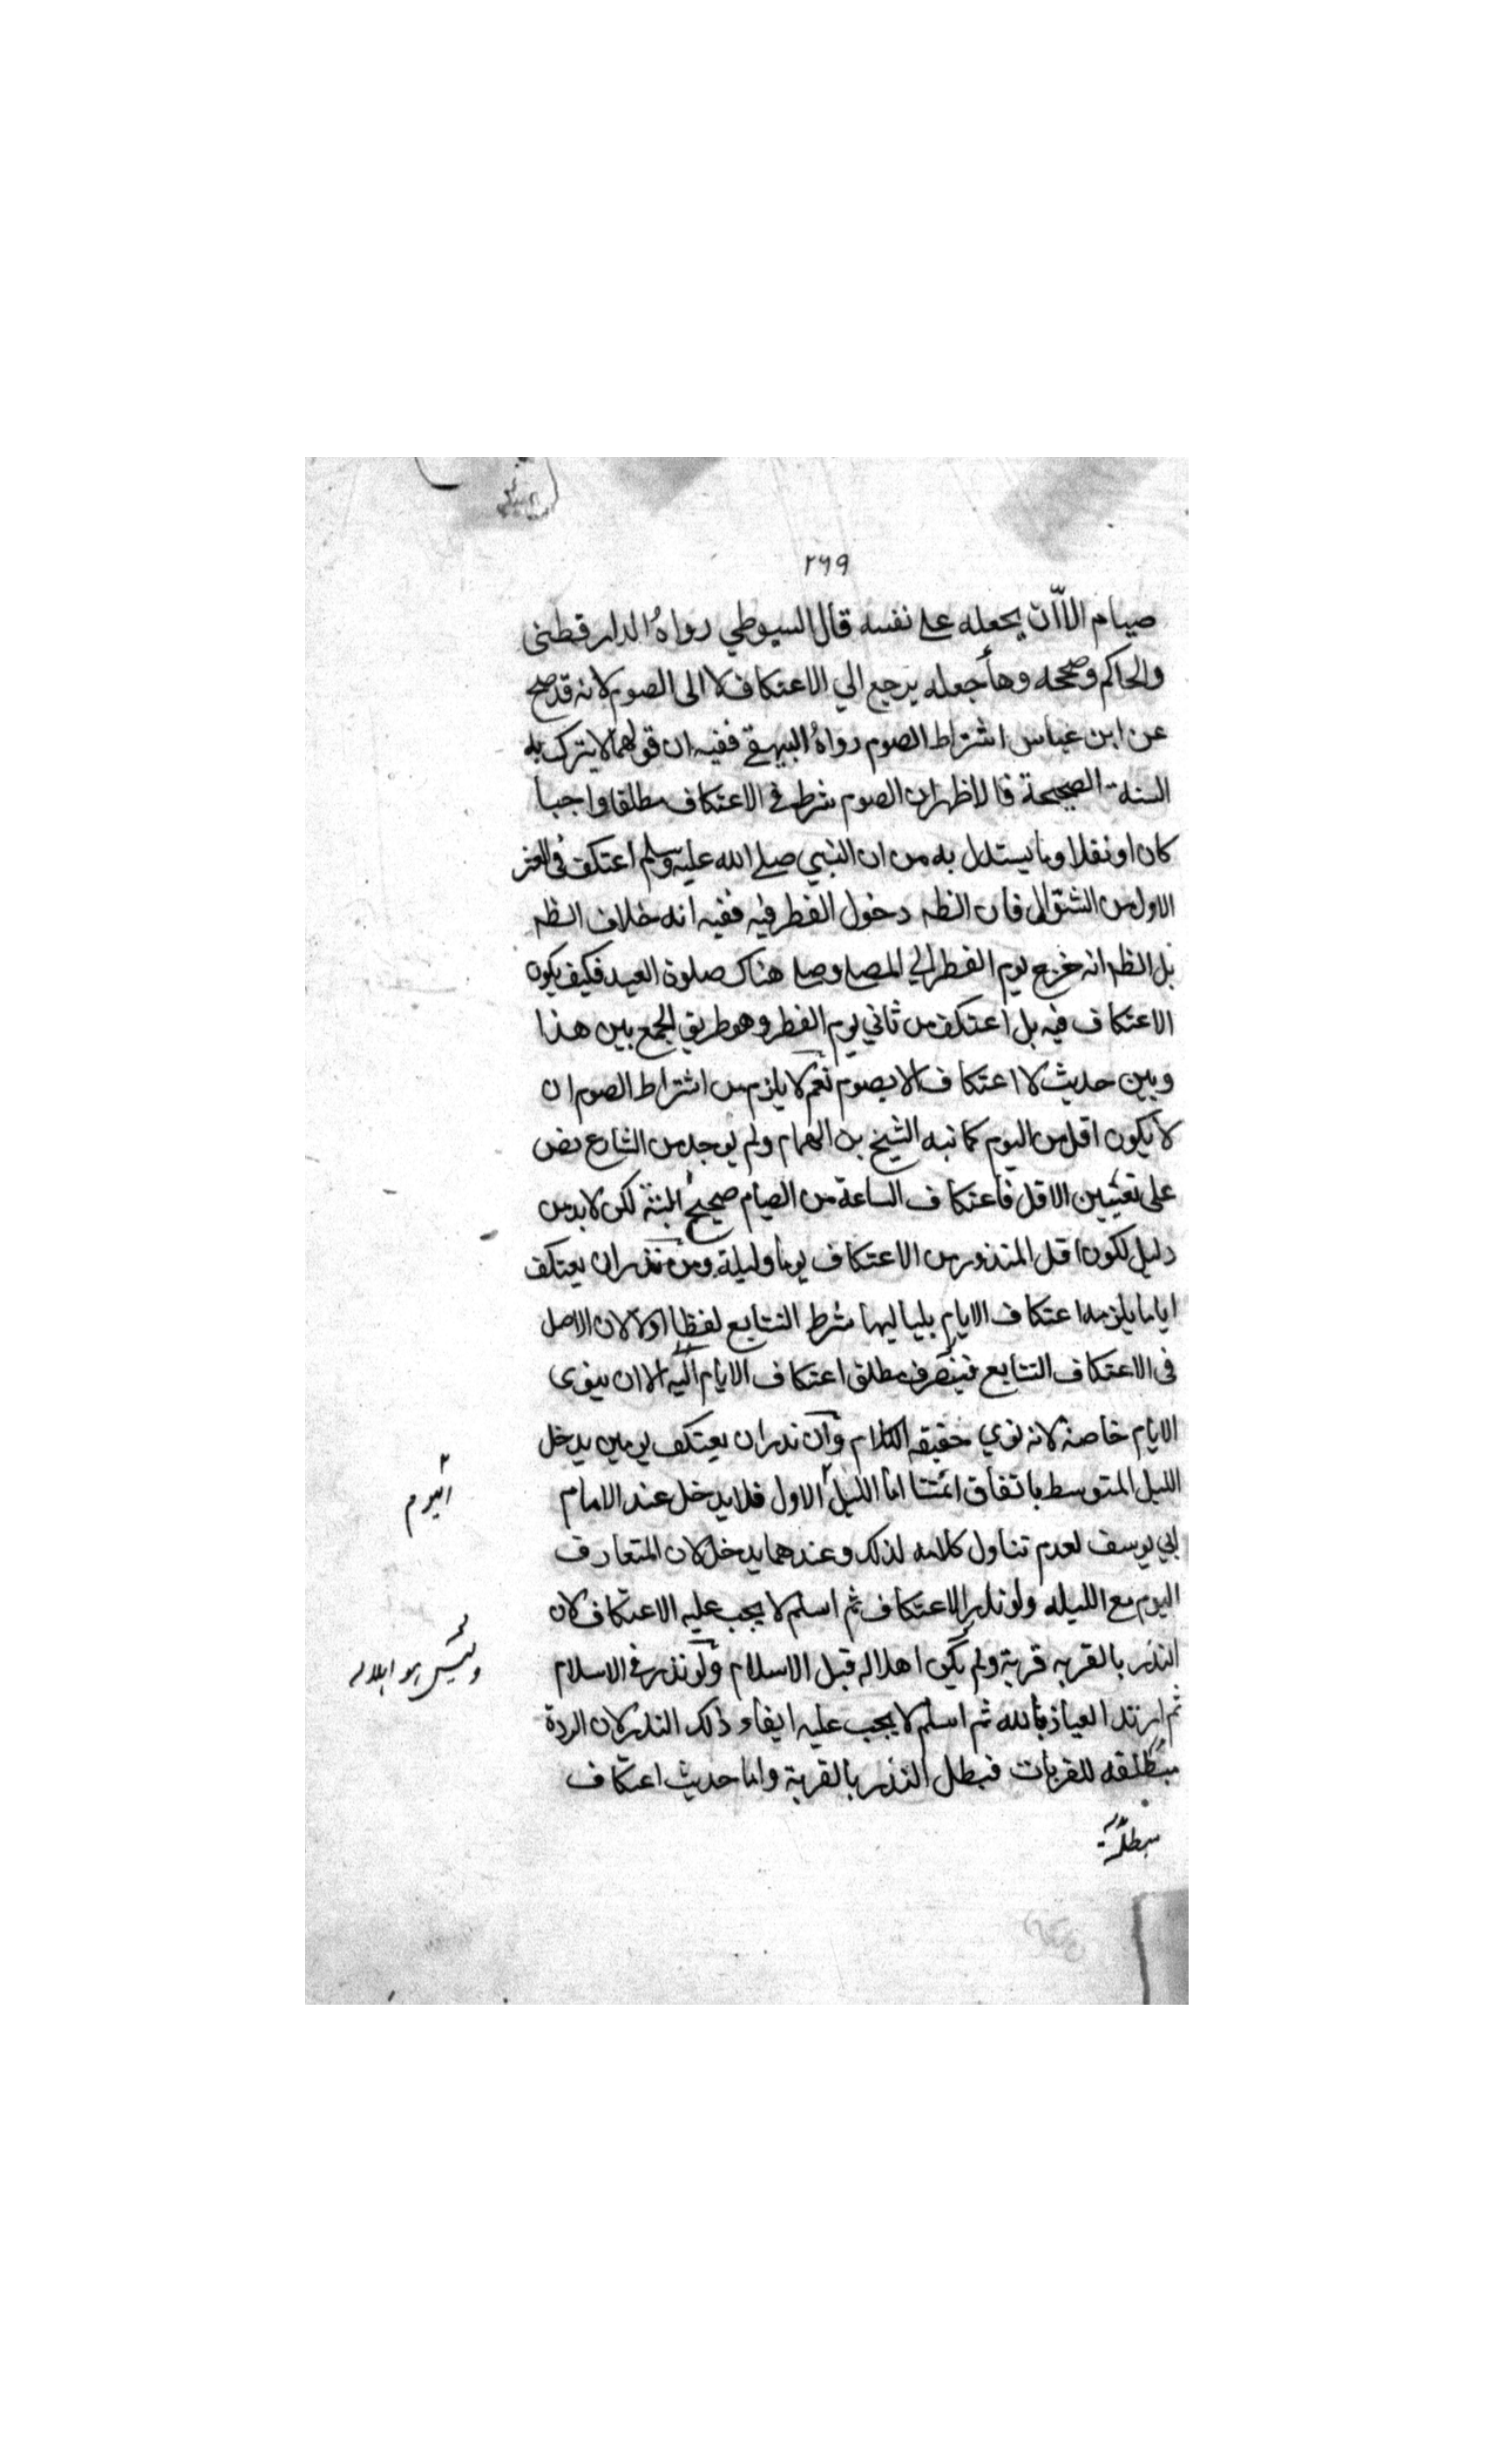 ٢٦٩
صيام الا ان يجعله على نفسه قال السيوطي رواه الدارقطنى
والحاكم وصححه وهأجعله يرجع الي الاعتكاف لا الى الصوم لانه قد صح
عن ابن عباس اشتراط الصوم رواه البيهقي ففيه ان قولهما لا يترك به
السنة الصحيحة فالاظهر ان الصوم شرط في الاعتكاف مطلقا واجبا
كان او نفلا وما يستدل به من ان النبي صلى الله عليه وسلم اعتكف في العشر
الاول من الشوال فان الظه دخول الفطر فيه ففيه انه خلاف الظه
بل الظه انه خرج يوم الفطر الي المصلي وصلي هناك صلوة العيد فكيف يكون
الاعتكاف فيه بل اعتكف من ثاني يوم الفطر وهو طريق الجمع بين هذا
وبين حديث لا اعتكاف الا بصوم نعم لا يلزم من اشتراط الصوم ان
لا يكون اقل من اليوم كما نبه الشيخ بن الهمام ولم يوجد من الشارع نص
على تعيين الاقل فاعتكاف الساعة من الصيام صحيح البتة لكن لا بد من
دليل لكون اقل المنذور من الاعتكاف يوما وليلة ومن نذر ان يعتكف
اياما يلزمه اعتكاف الايام بلياليها شرط التتابع لفظا اولا لان الاصل
فى الاعتكاف التتابع فينصرف مطلق اعتكاف الايام اليه الا ان ينوى
الايام خاصة لانه نوي حقيقه الكلام وان نذر ان يعتكف يومين يدخل
الليل المتوسط باتفاق ائمتنا اما الليل الاول فلا يدخل عند الامام
اليوم
ابي يوسف لعدم تناول كلامه لذلك وعندهما يدخل لان المتعارف
اليوم مع الليله ولو نذر الاعتكاف ثم اسلم لا يجب عليه الاعتكاف لان
النذر بالقربه قربة ولم يكن اهلا له قبل الاسلام ولو نذر في الاسلام
وليس هو اهلا له
ثم ارتد العياذ بالله ثم اسلم لا يجب عليه ايفاء ذلك النذر لان الردة
مبطلقه للقربات فبطل النذر بالقربة واما حديث اعتكاف
مبطلة